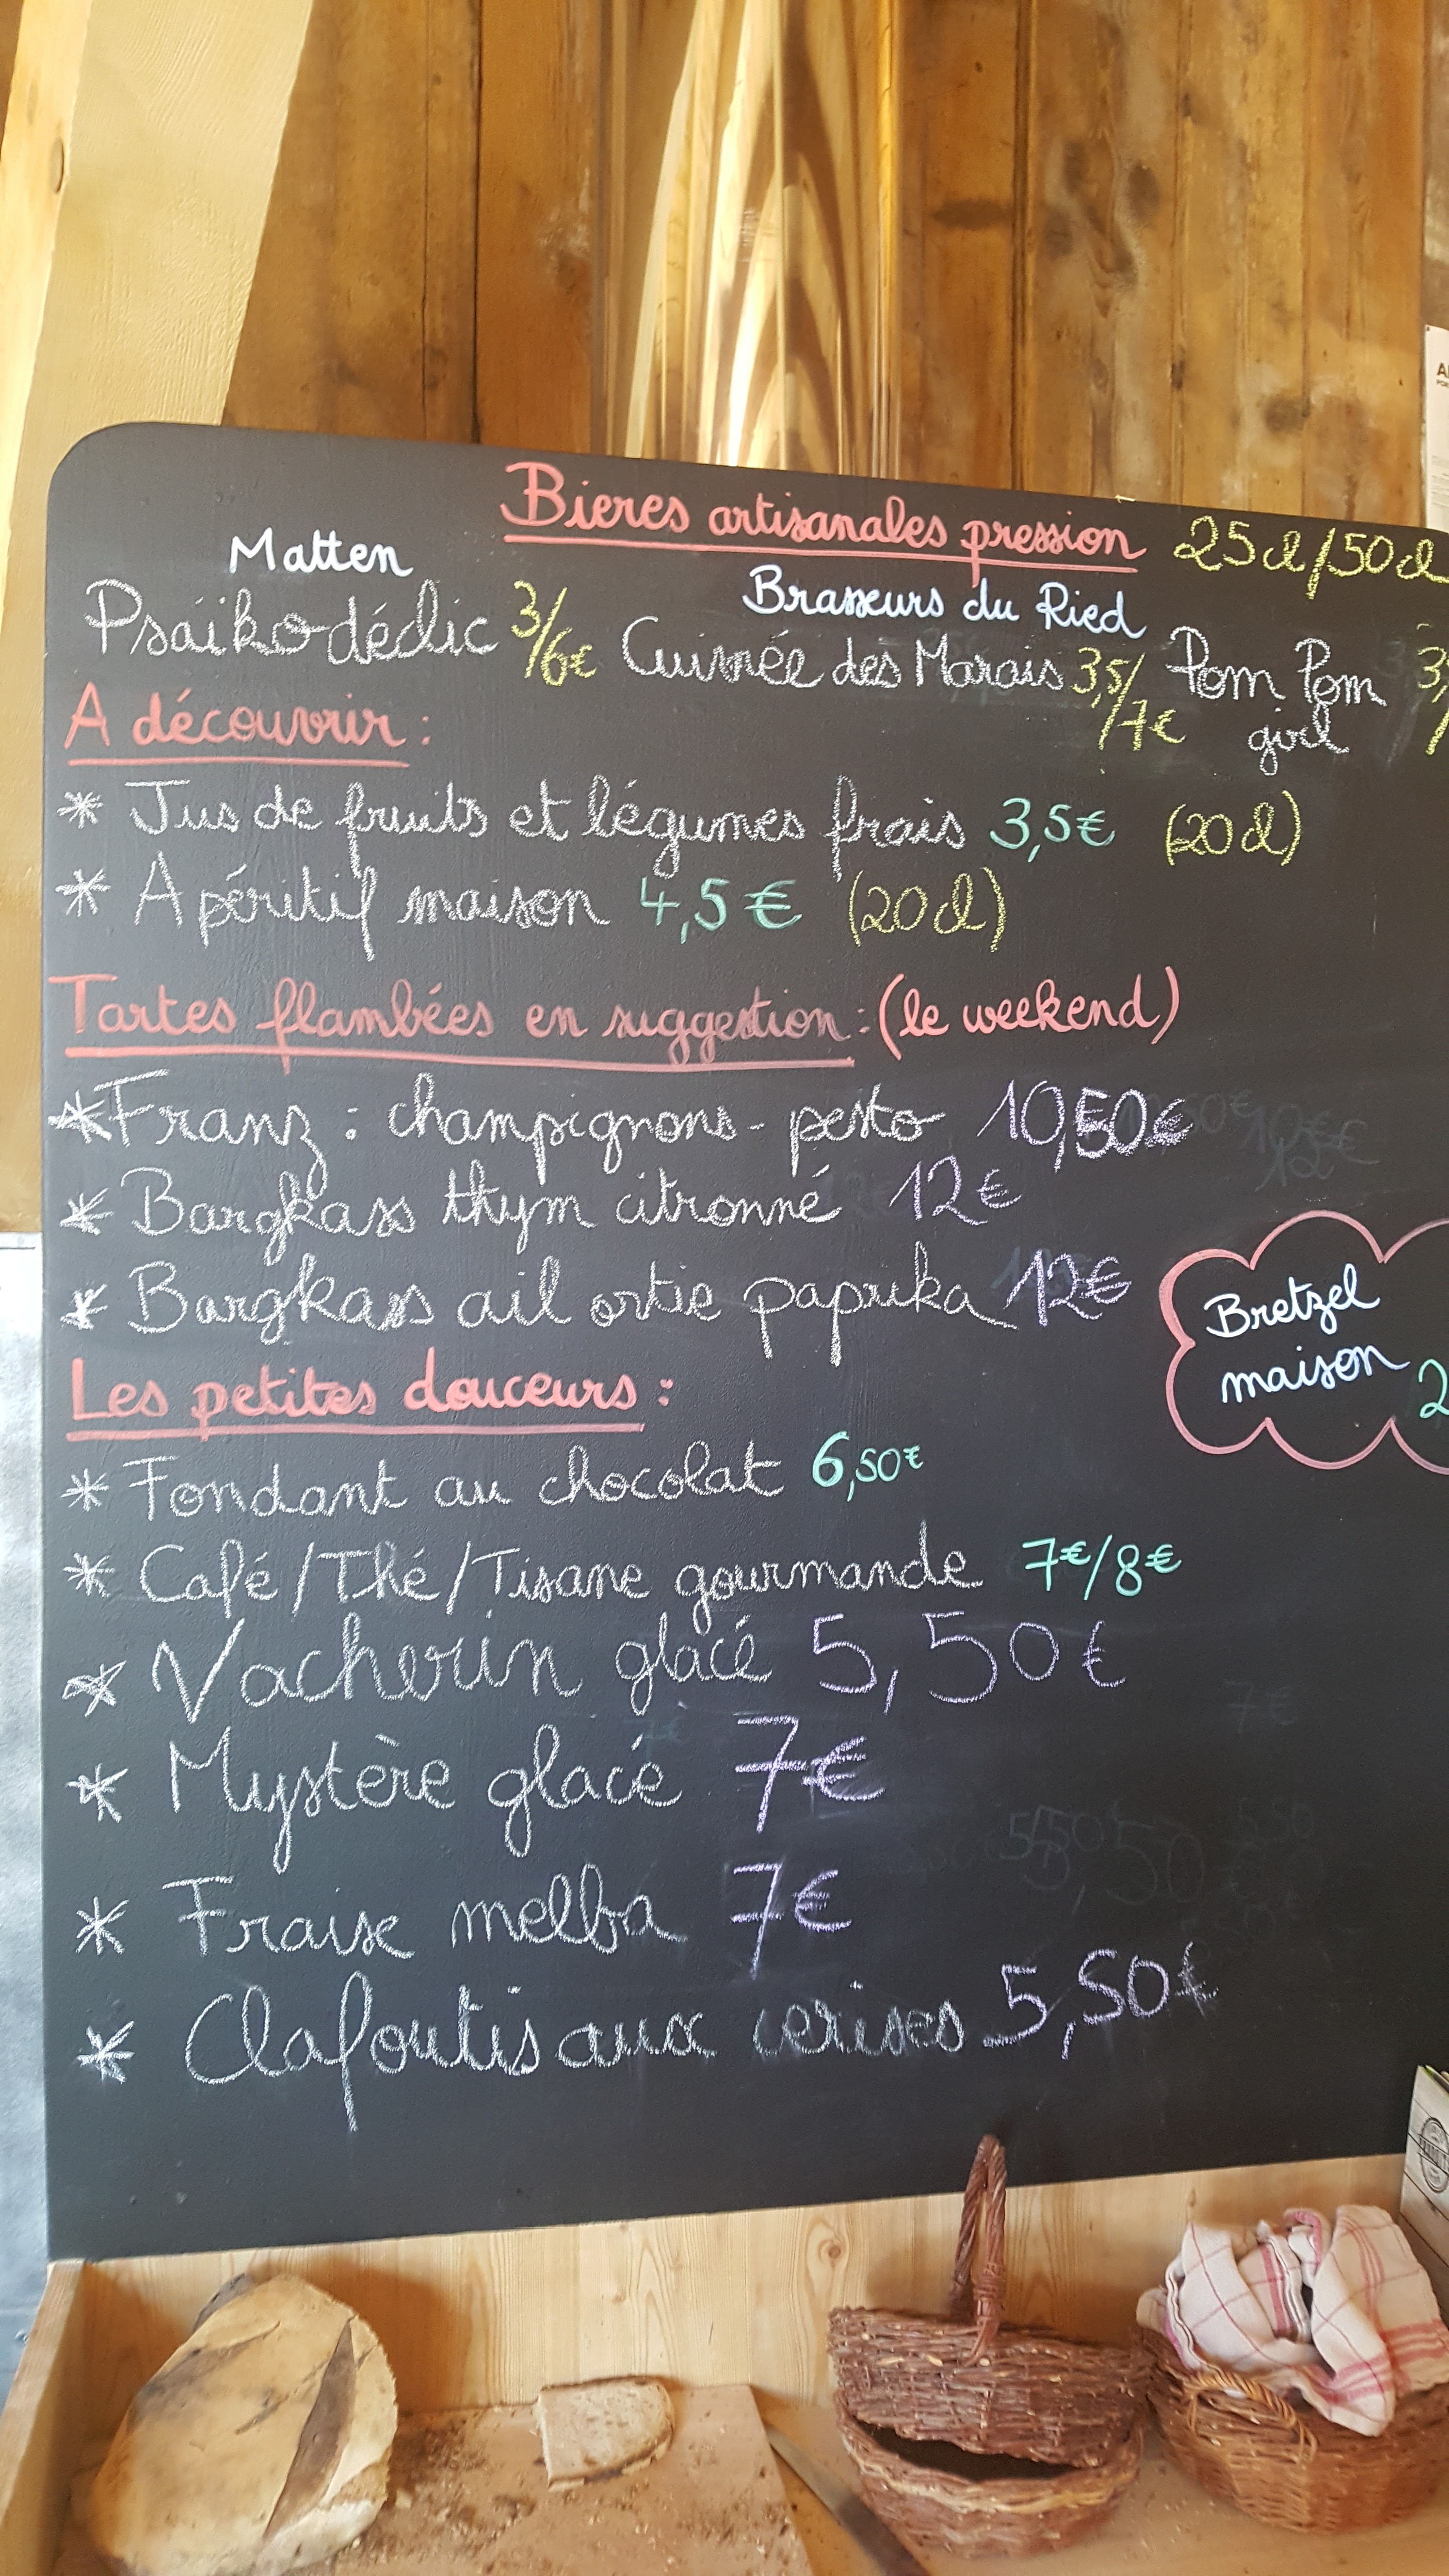 Bieres artisanales pression 25cl/50cl
Matten
Brasseurs du Ried
Psaïkodéclic 3/6€ Cuivrée des Marais 3,5/7€ Pom Pom girl 3,
A découvrir :
* Jus de fruits et légumes frais 3,5€ (20cl)
* Apéritif maison 4,5€ (20cl)
Tartes flambées en suggestion : (le weekend)
* Franz : champignons - pesto 10,50€
* Bargkass thym citronné 12€
* Bargkass ail ortie paprika 12€
Bretzel
maison 2
Les petites douceurs :
* Fondant au chocolat 6,50€
* Café/Thé/Tisane gourmande 7€/8€
* Vacherin glacé 5,50€
* Mystère glacé 7€
* Fraise melba 7€
* Clafoutis aux cerises 5,50€